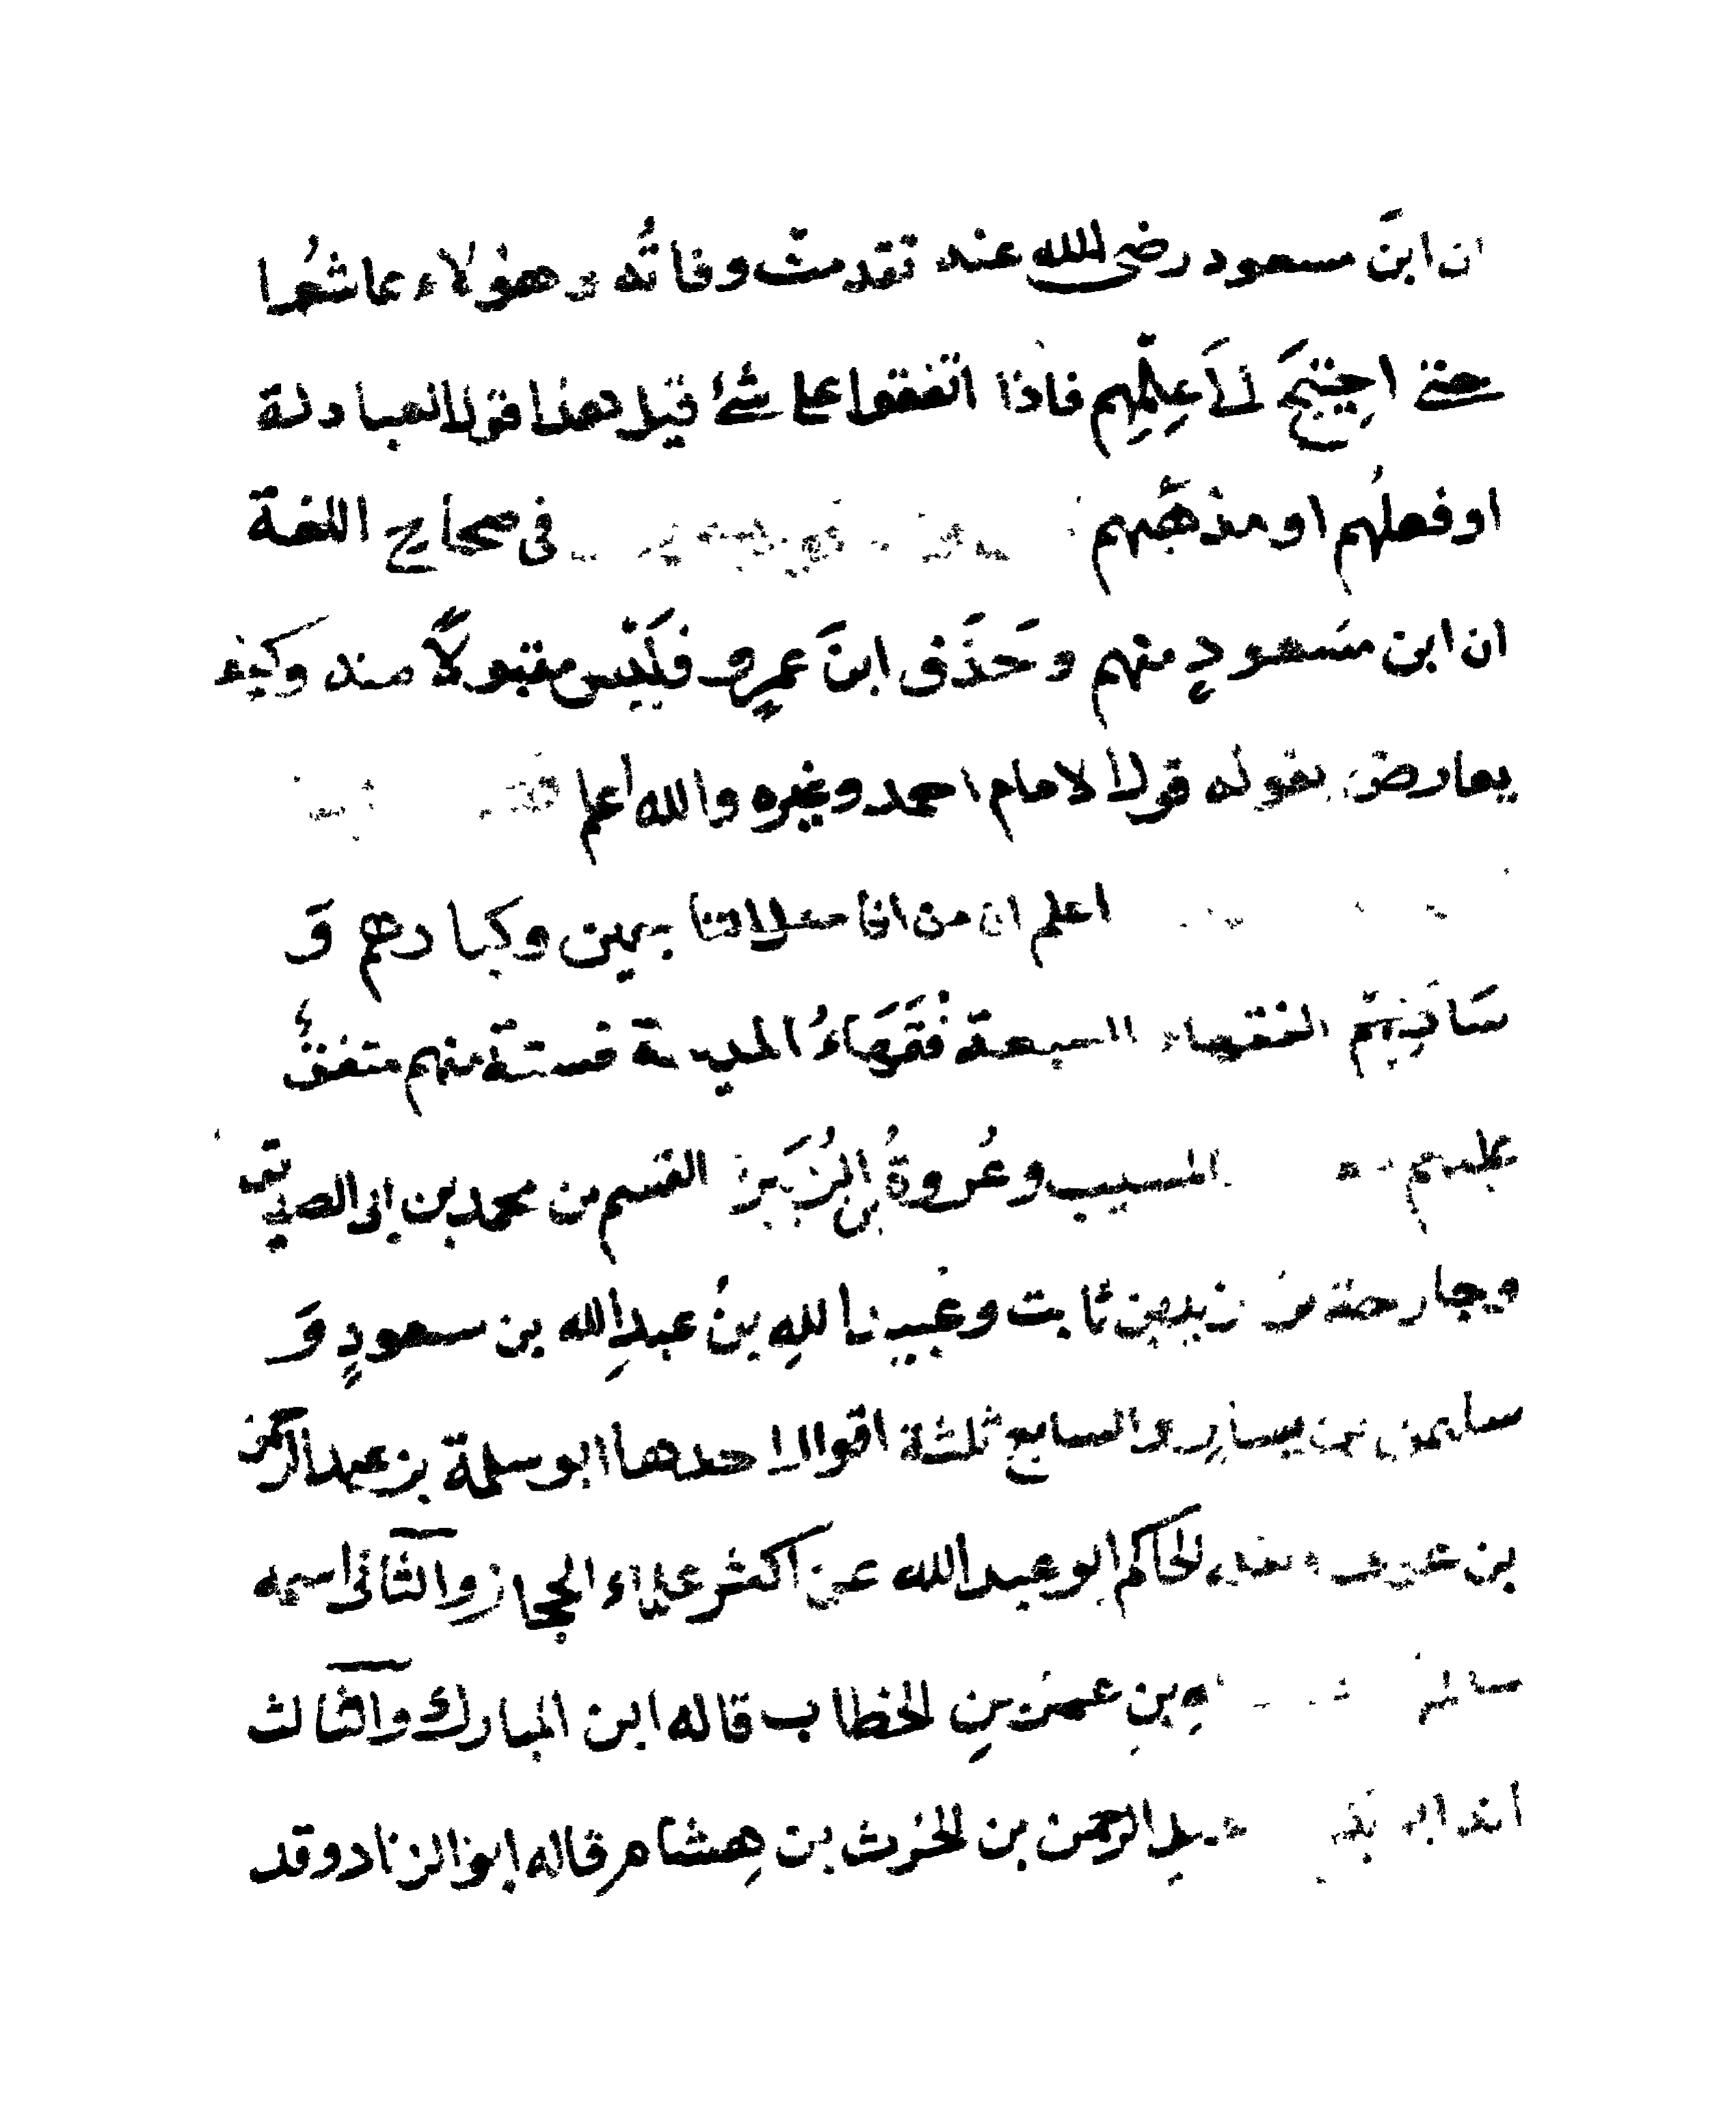 ان ابنَ مسعود رضي الله عنه تقدمت وفاتُه وهؤلاء عاشُوا
حتى احتِيجَ لى عِلمِهم فاذا اتفقوا على شئ قيل هذا قول العبادلة
او فعلُهم او مذهبُهم في صحاح اللغة
ان ابن مسعودٍ منهم وحَذَف ابنَ عمرٍو فلَيْس مقبولاً منه وكيف
يعارض بقوله قول الامام احمد وغيره والله اعلم
اعلم ان من افاضل التابعين وكبارهم وَ
سَادَتِهم الفقهاء السبعة فُقَهَاءُ المدينة فستة منهم متفقٌ
عليهم المسيب وعُروةُ بن الزُبَير القسم بن محمد بن ابى الصديق
وخارجة بن زيد بن ثابت وعُبيد اللهِ بنُ عبدِ الله بن سعودٍ وَ
سليمن بن يسارٍ والسابع ثلثة اقوال احدها ابو سلمة بن عبد الرحمن
بن عوف الحاكم ابو عبد الله عن اكثر علماء الحجاز والثانى اسمه
سالم بنِ عمرَ بنِ الخطاب قاله ابن المبارك والثالث
انه ابو عبدِ الرحمن بن الحرث بن هِشام قاله ابو الزناد وقد